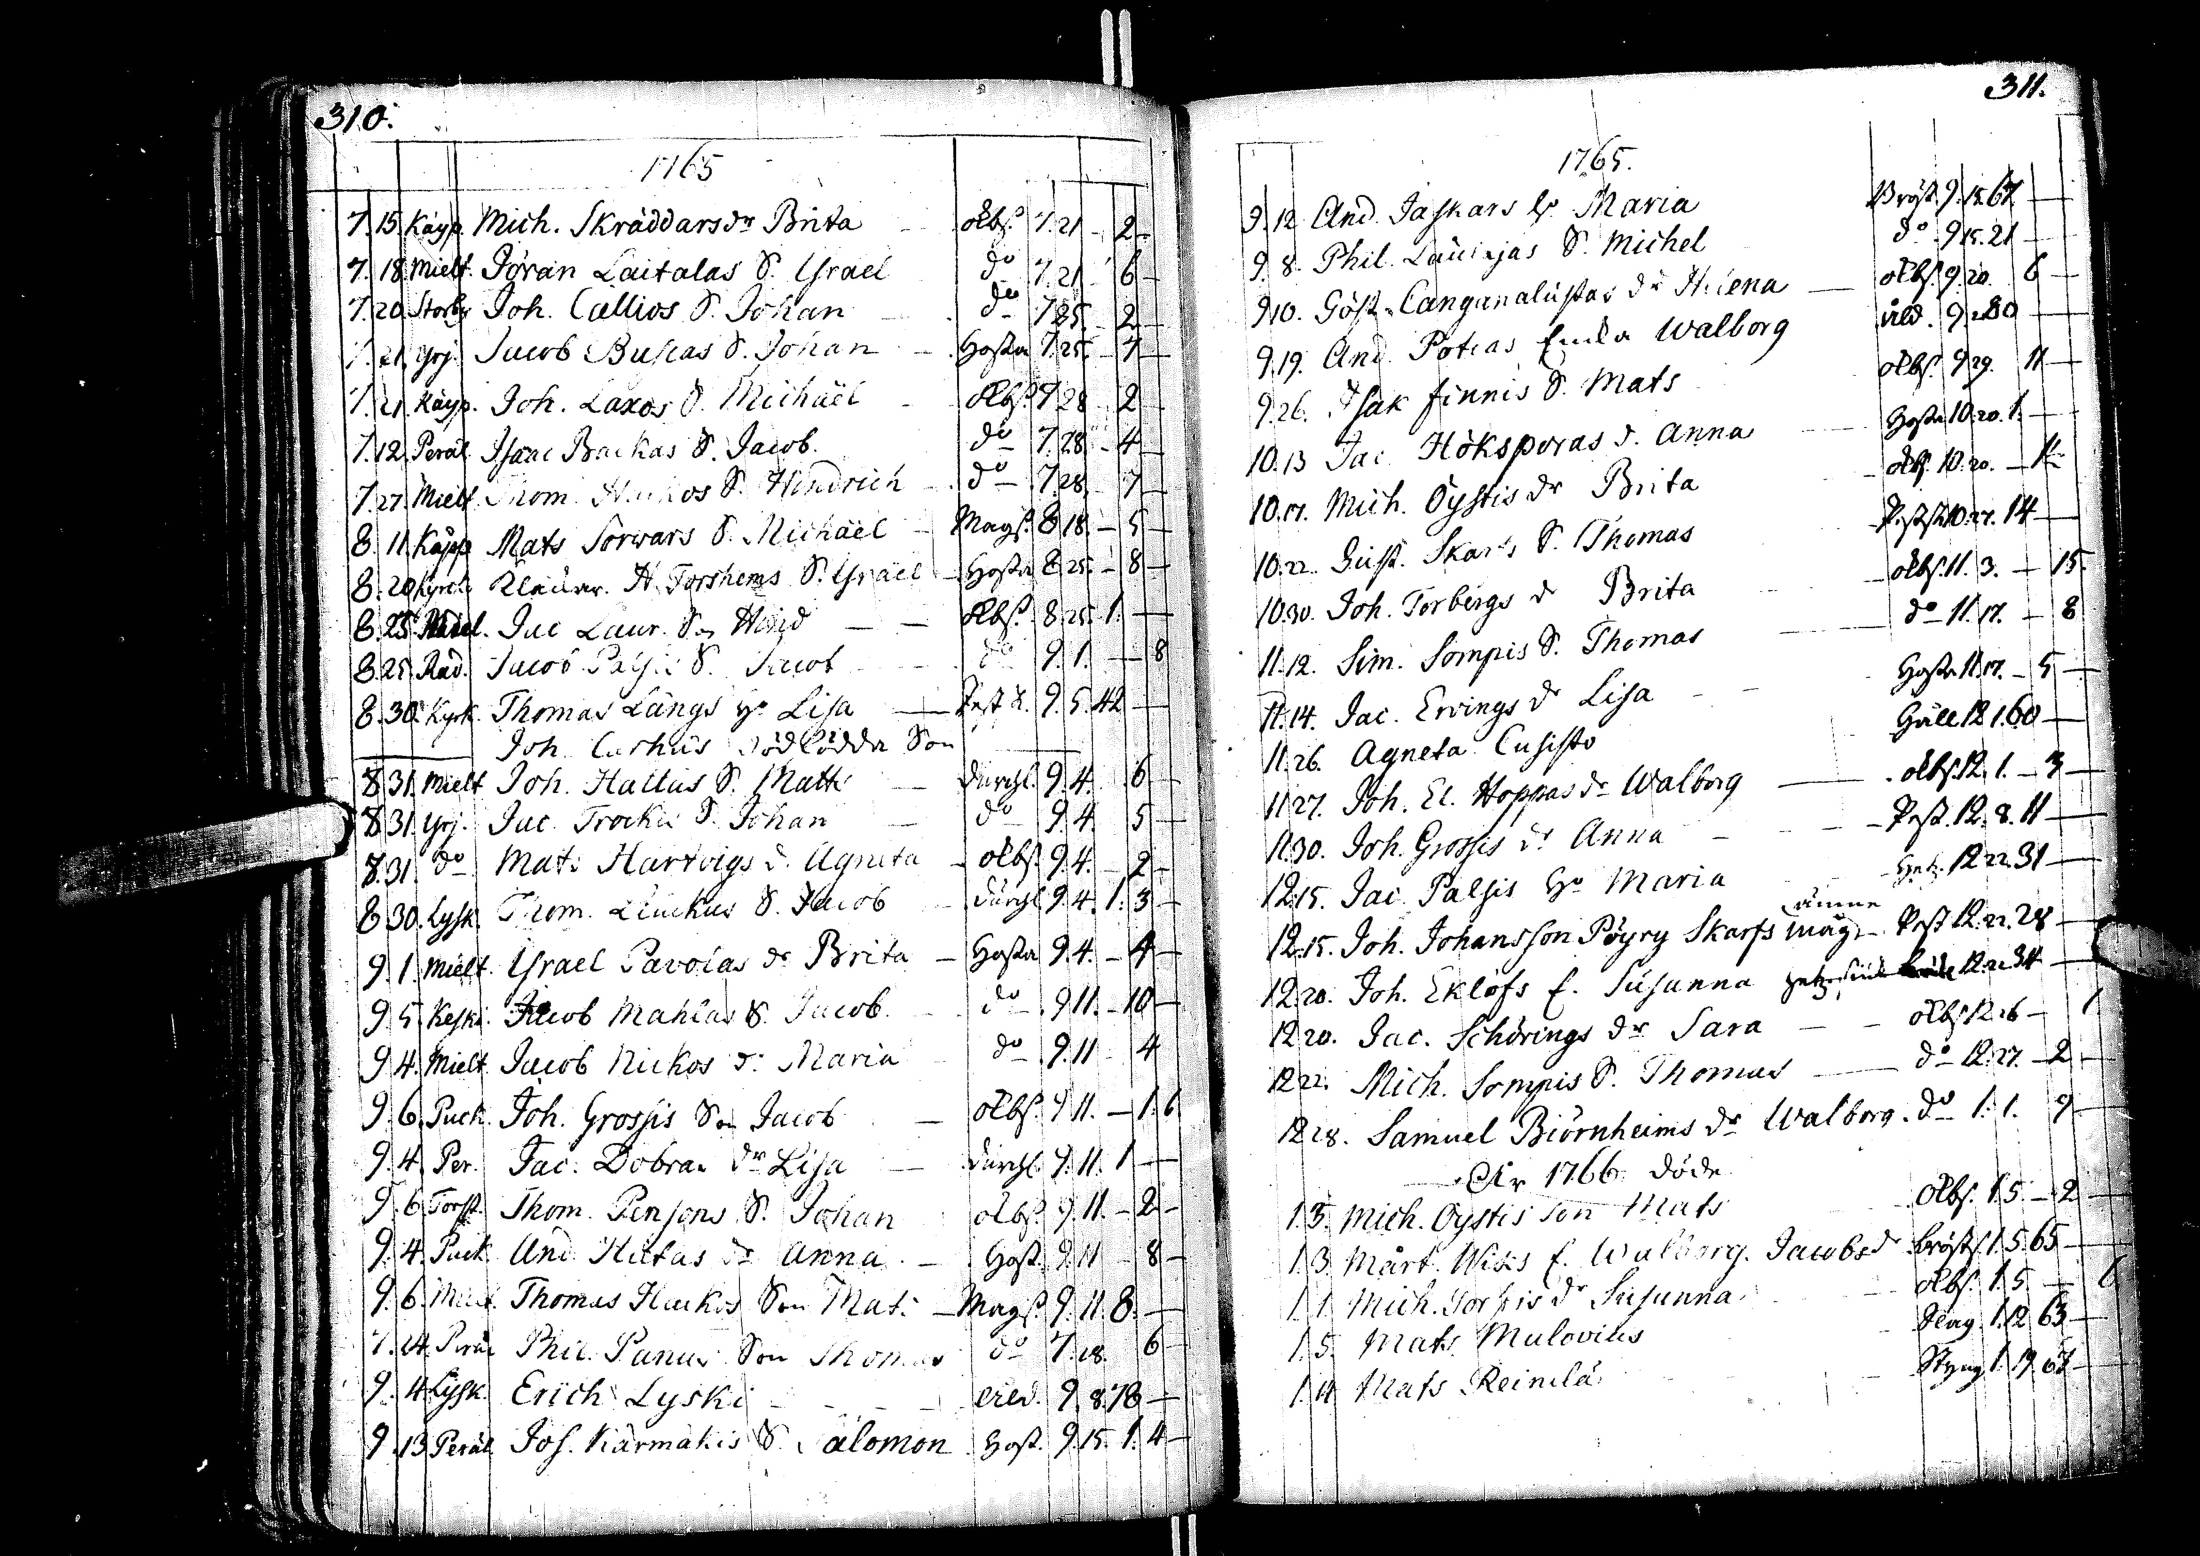 310.
1765
7. 15. Käyp. Mich. Skräddars dr Brita olbs. 7. 21 - 2 -
7. 18. Mielt. Jöran Laitalas S. Israel do 7. 21 - 6 -
7. 20. Storby Joh. Callios S. Johan do 7. 25. - 2 -
7. 21. Yrj. Jacob Buscas S. Johan Hosta 7. 25. - 7 -
7. 21. Käyp. Joh. Laxos S. Michaël olbs. 7. 28 - 2 -
7. 12. Peräl. Isaac Backas S. Jacob. do 7. 28 - 4 -
7. 27. Mielt. Thom. Haikos S. Hindrich do 7. 28. 7 -
8. 11. Käpp. Mats Sorvars S. Michaël - Mags. 8. 18. - 5 -
8. 20. Kyrck. H. Forshems S. Israel - Hosta 8. 25. - 8 -
8. 25. Jac Laur. Son Hind - - olbs. 8. 25. 1. -
8. 25. Räd. Jacob S. Jacob do 9. 1. - 8
8. 30. Kyrk. Thomas Längs Ho Lisa - 9. 5. 42 -
Joh. Carhus dödfödda Son
8. 31. Mielt Joh. Hallus S. Matts - durchl. 9. 4. 6 -
8. 31. Yrj. Jac. S. Johan - do 9. 4. 5 -
8. 31. do Mats Hartvigs d. Agneta - olbs. 9. 4. - 2 -
8. 30. Lysk. Thom. S. Jacob durchl 9. 4. 1. 3 -
9. 1. Mielt. Israel Pavolas dr Brita - Hosta 9. 4. - 4 -
9. 5. Keski. Jacob Mahlas S. Jacob. - do 9. 11. - 10 -
9. 4. Mielt Jacob Nickos d. Maria - do 9. 11 - 4
9. 6. Puck. Joh. Grossis Son Jacob - olbs. 9. 11. - 1. 6
9. 4. Per. Jac. Dobras dr Lisa - durchl. 9. 11. 1 -
9. 6. Torst. Thom. Pensons S. Johan olbs. 9. 11. - 2 -
9. 4. Puck And. dr Anna - Host. 9. 11 - 8 -
9. 6. Mielt. Thomas Haikos Son Mats - Mags. 9. 11. 8. -
7. 14. Peräl Phil. Panus Son Thomas do 7. 18. 6 -
9. 4. Lysk. Erich Lyski - - - 9. 8. 78 -
9. 13. Peräl Jos. Karmakis S. Salomon Host. 9. 15. 1. 4 -
311.
1765.
9. 12. And. Jaskars Ho Maria Bröst. 9. 15. 67 -
9. 8. Phil. S. Michel do 9. 15. 21 -
9. 10. Göst. Canganalustas dr Helena - olbs. 9. 20. 6 -
9. 19. And. Potcas Enka Walborg åld. 9. 80 -
9. 26. Isak finnis S. Mats olbs. 9. 29. 11 -
10. 13 Jac Höksporas d. Anna Hosta 10. 20. 1. -
10. 17. Mich. Öystis dr Brita - olbs. 10. 20. - 11
10. 22. Gust. Skarfs S. Thomas 10. 27. 14 -
10. 30. Joh. Torbergs d Brita - olbs. 11. 3. - 15.
11. 12. Sim. Sompis S. Thomas - do 11. 17. - 8
11. 14. Jac. Ervings dr Lisa - - Hosta 11. 17. - 5 -
11. 26. Agneta Cusisto Håll 12. 1. 60 -
11. 27. Joh. El. Hoppas dr Walborg - olbs. 12. 1. - 3 -
11. 30. Joh. Grossis dr Anna - - - Rest. 12. 8. 11 -
12. 15. Jac. Palsis Ho Maria - - 12. 22. 31 -
12. 15. Joh. Johansson Pöyry Skarfs måg - 12. 22. 28 -
12. 20. Joh. Eklöfs E. Susanna 12. 22. 34 -
12. 20. Jac. Schörings dr Sara - - olbs. 12. 26 - 1
12. 22. Mich. Sompis S. Thomas - do 12. 27. - 2 -
12. 28. Samuel Biörnheims dr Walborg. do 1. 1. 9 -
År 1766 döde
1. 3. Mich. Öystis Son Mats olbs. 1. 5. - 2 -
1. 3. Mårt. Wiks E. Walborg. Jacobsdr bröstf. 1. 5. 65 -
1. 1. Mich. dr Susanna - olbs. 1. 5. -
1. 5. Mats Mulovius - Slag 1. 12 63 -
1. 11 Mats Reinilä - - Styng 1. 19. 67 -